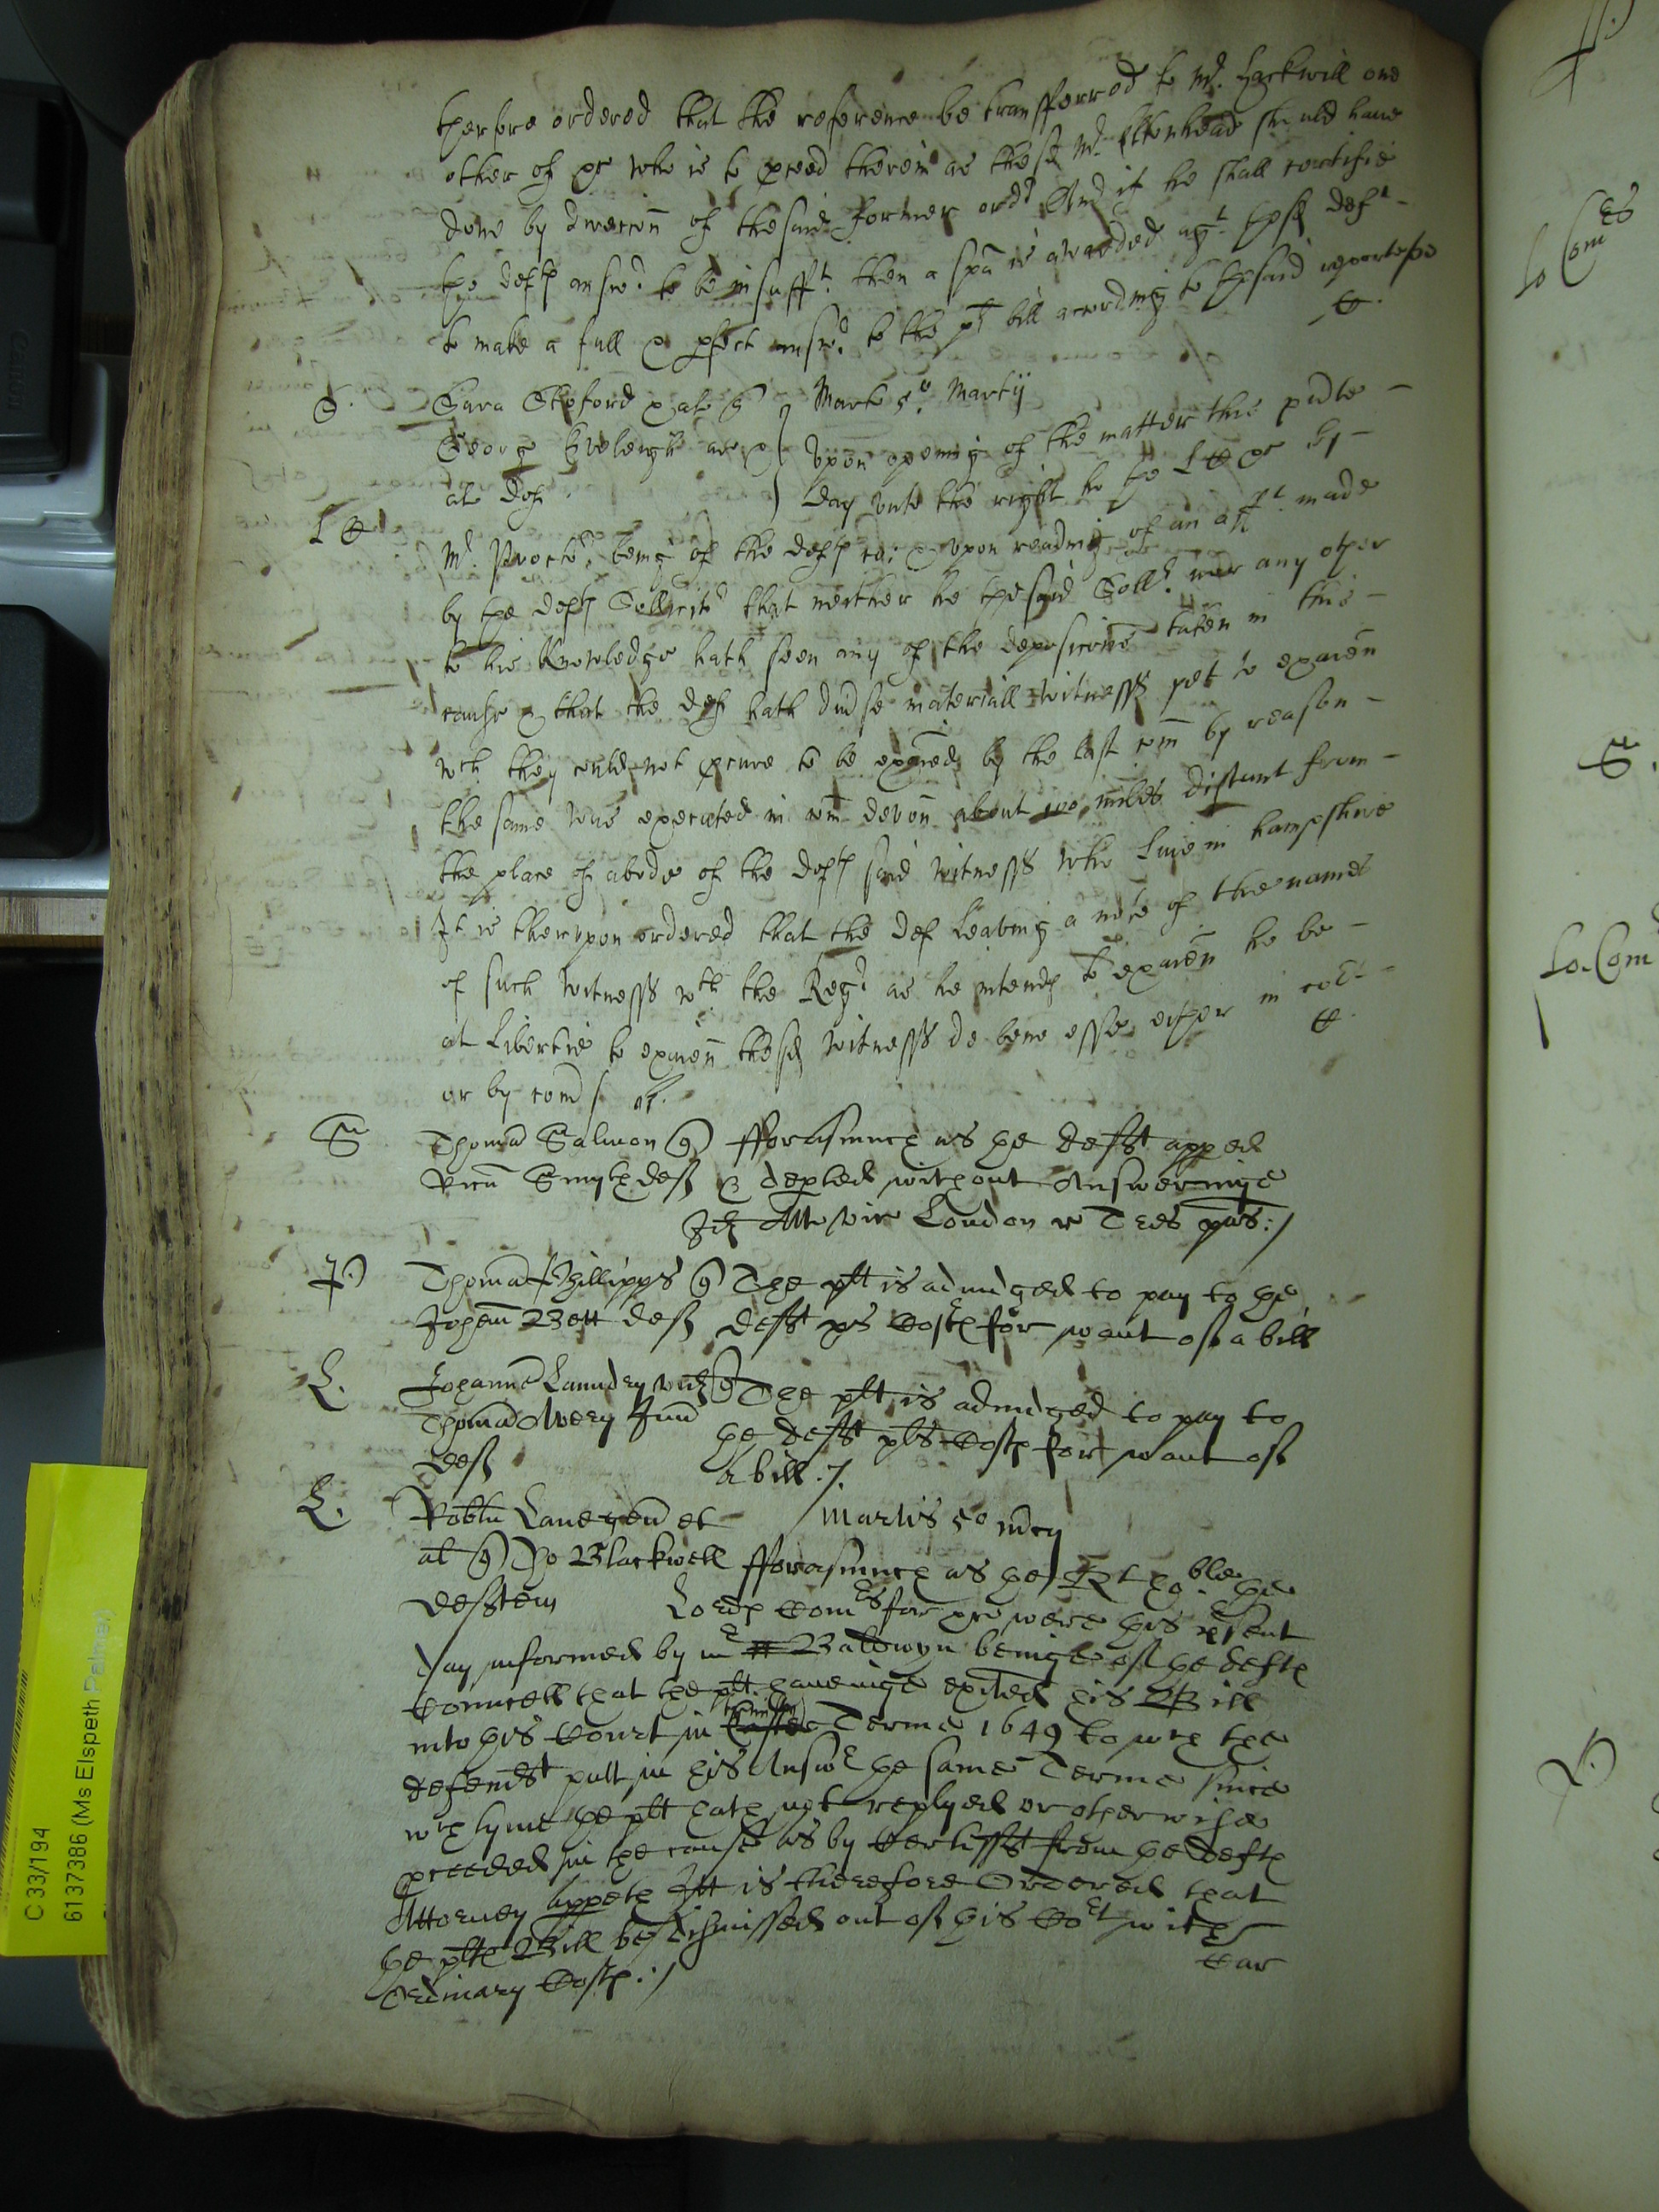 therfore ordered that the reference be transferred to Mr. Hackwill one
other of ye who is to pceed therein as the sd Mr. Elkonhead should have
done by direccon of the said former ordr And if he shall certifie
the defts answr to be insufft. then a spa is awarded agt. the sd deft -
to make a full & pfect answr. to the plts bill according to the said reporte
S. Sara Stoford & al q Marte 5o. Martij
George Eveleigh ar & Upon opening of the matter this pnte -
al def. day unto the right ho the L Cs by -
L C Mr. being of the defts co: & upon reading of an afft. made
by the defts Sollicitr that neither he the said Sollr. nor any other
to his knowledge hath seen any of the deposicons taken in this -
cause & that the def hath diuse materiall witnesses yet to examen
wch they could not pcure to be exaied by the last com by reason -
the same was executed in com devon about 100 miles distant from -
the place of abode of the defts said witnesses who live in hampshire
It is therupon ordered that the def leaving a note of the names
of such witnesses wth the Regr as he intends to examen he be -
at libertie to examen the sd witnesses de bene esse either in cot -
or by com
S Thoma Salmon q fforasmuch as the deft apped
Smyth def & depted without Answeringe
Id Att Vic London r Tres pas:/
P Thoma Phillipps q The plt is adiudged to pay to the
Johem Bett def deft xs Costs for want of a bill
L. Johanna Laundey vid q The plt is adiudged to pay to
Thoma Avery Jun the deft xls Costs for want of
def a bill./.
L. Robtu Lane gen et Martis 5o mcij
al q Jo Blackwell fforasmuch as the Rt hoble the
deftem Lords Comrs for ye were this psent
day informed by mr Baldwyn beinge of the defts
Councell that the plt haveinge exited his Bill
into this Court in Easter Terme 1649 to wch the
defendt putt in his Answr the same Terme since
wch tyme the plt hath not replyed or otherwise
pceeded in the cause as by Certifft from the defts
Attorney appeth Itt is therefore Ordered that
the plts Bill be dismissed out of this Cort with
Ordinary Costs:/
Lo Comes
S.
Lo. Com
C 33/194
6137386 (Ms Elspeth Palmer)